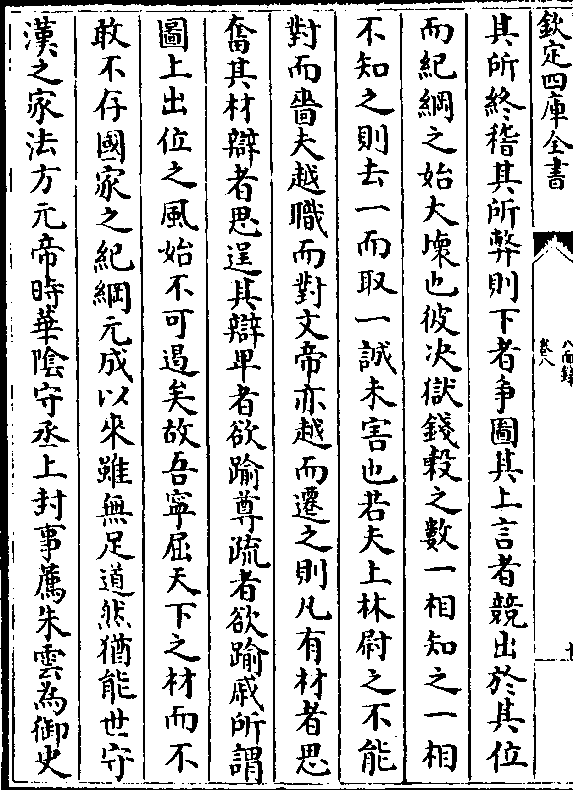 欽定四庫全書
八面鋒
卷八
其所終稽其所弊則下者爭圖其上言者競出於其位
而紀綱之始大壞也彼決獄錢穀之數一相知之一相
不知之則去一而取一誠未害也若夫上林尉之不能
對而嗇夫越職而對文帝亦越而遷之則凡有材者思
奮其材辯者思逞其辯卑者欲踰尊疏者欲踰戚所謂
圖上出位之風始不可遏矣故吾寧屈天下之材而不
敢不存國家之紀綱元成以來雖無足道然猶能世守
漢之家法方元帝時華陰守丞上封事薦朱雲為御史